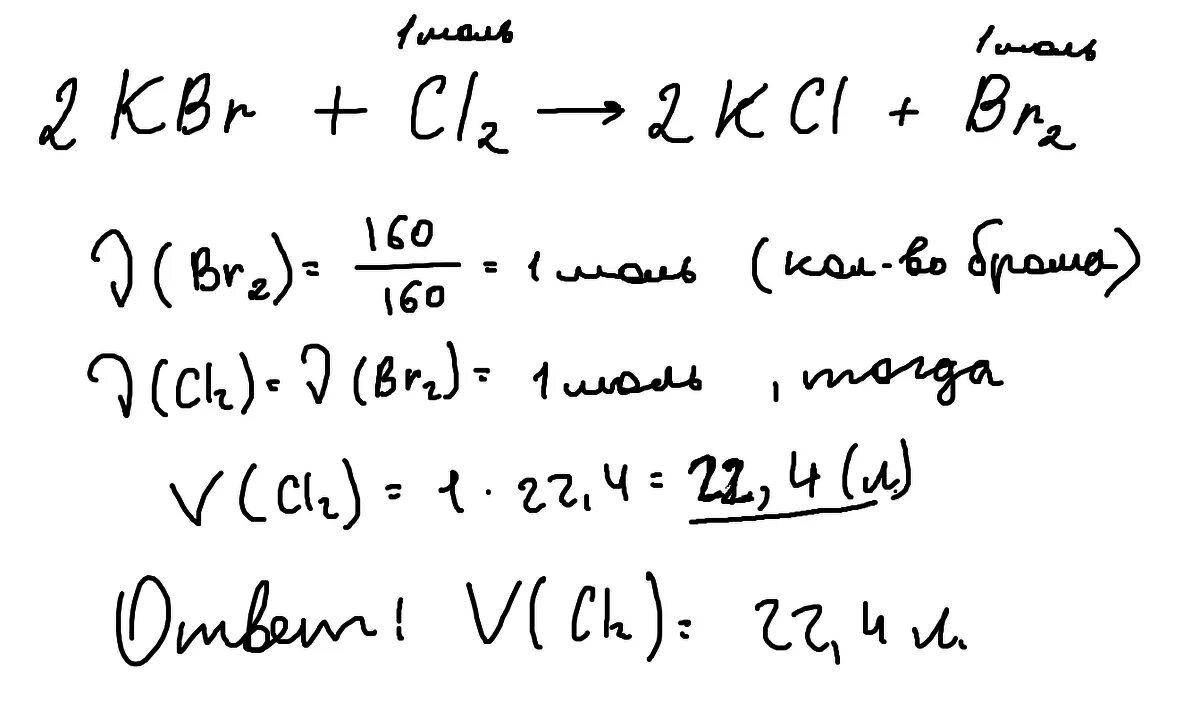 1 моль 1 моль
2 KBr + Cl₂ → 2 KCl + Br₂
ν(Br₂) = 160/160 = 1 моль (кол-во брома)
ν(Cl₂) = ν(Br₂) = 1 моль, тогда
V(Cl₂) = 1 · 22,4 = 22,4 (л.)
Ответ: V(Cl₂) = 22,4 л.